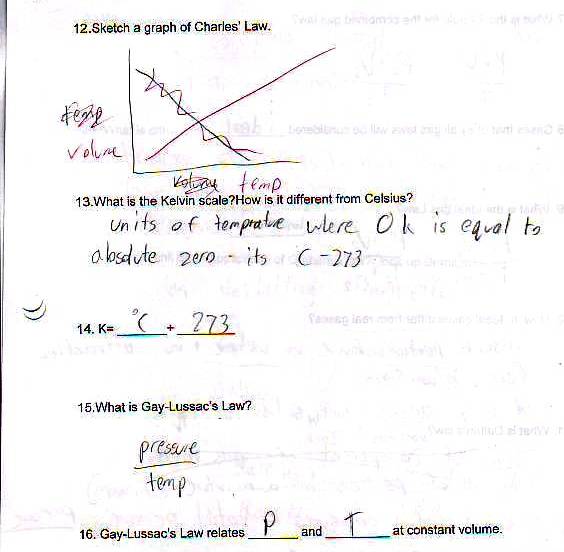 12.Sketch a graph of Charles' Law.
volume
temp
13.What is the Kelvin scale?How is it different from Celsius?
units of temprature where 0 k is equal to
absolute zero - its C-273
14. K= °C + 273
15.What is Gay-Lussac's Law?
pressure
temp
16. Gay-Lussac's Law relates P and T at constant volume.